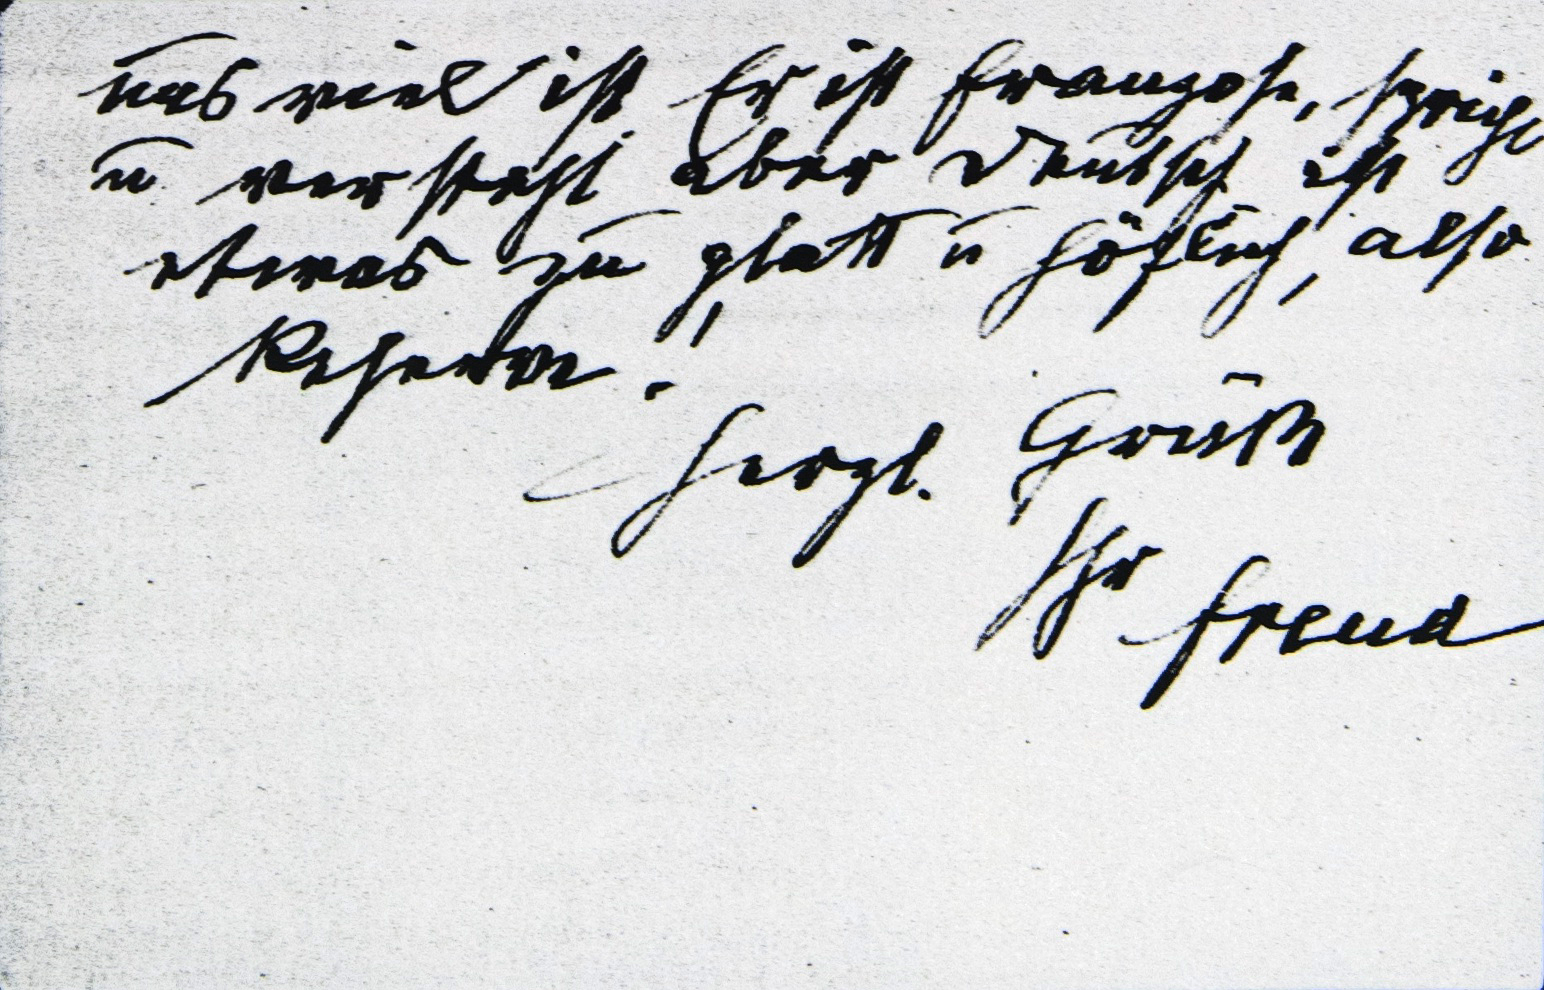 was viel ist. Er ist Franzose, spricht
u versteht aber Deutsch ist
etwas zu glatt u höflich, also
Reserve!
Herzl. Gruß
Ihr Freud